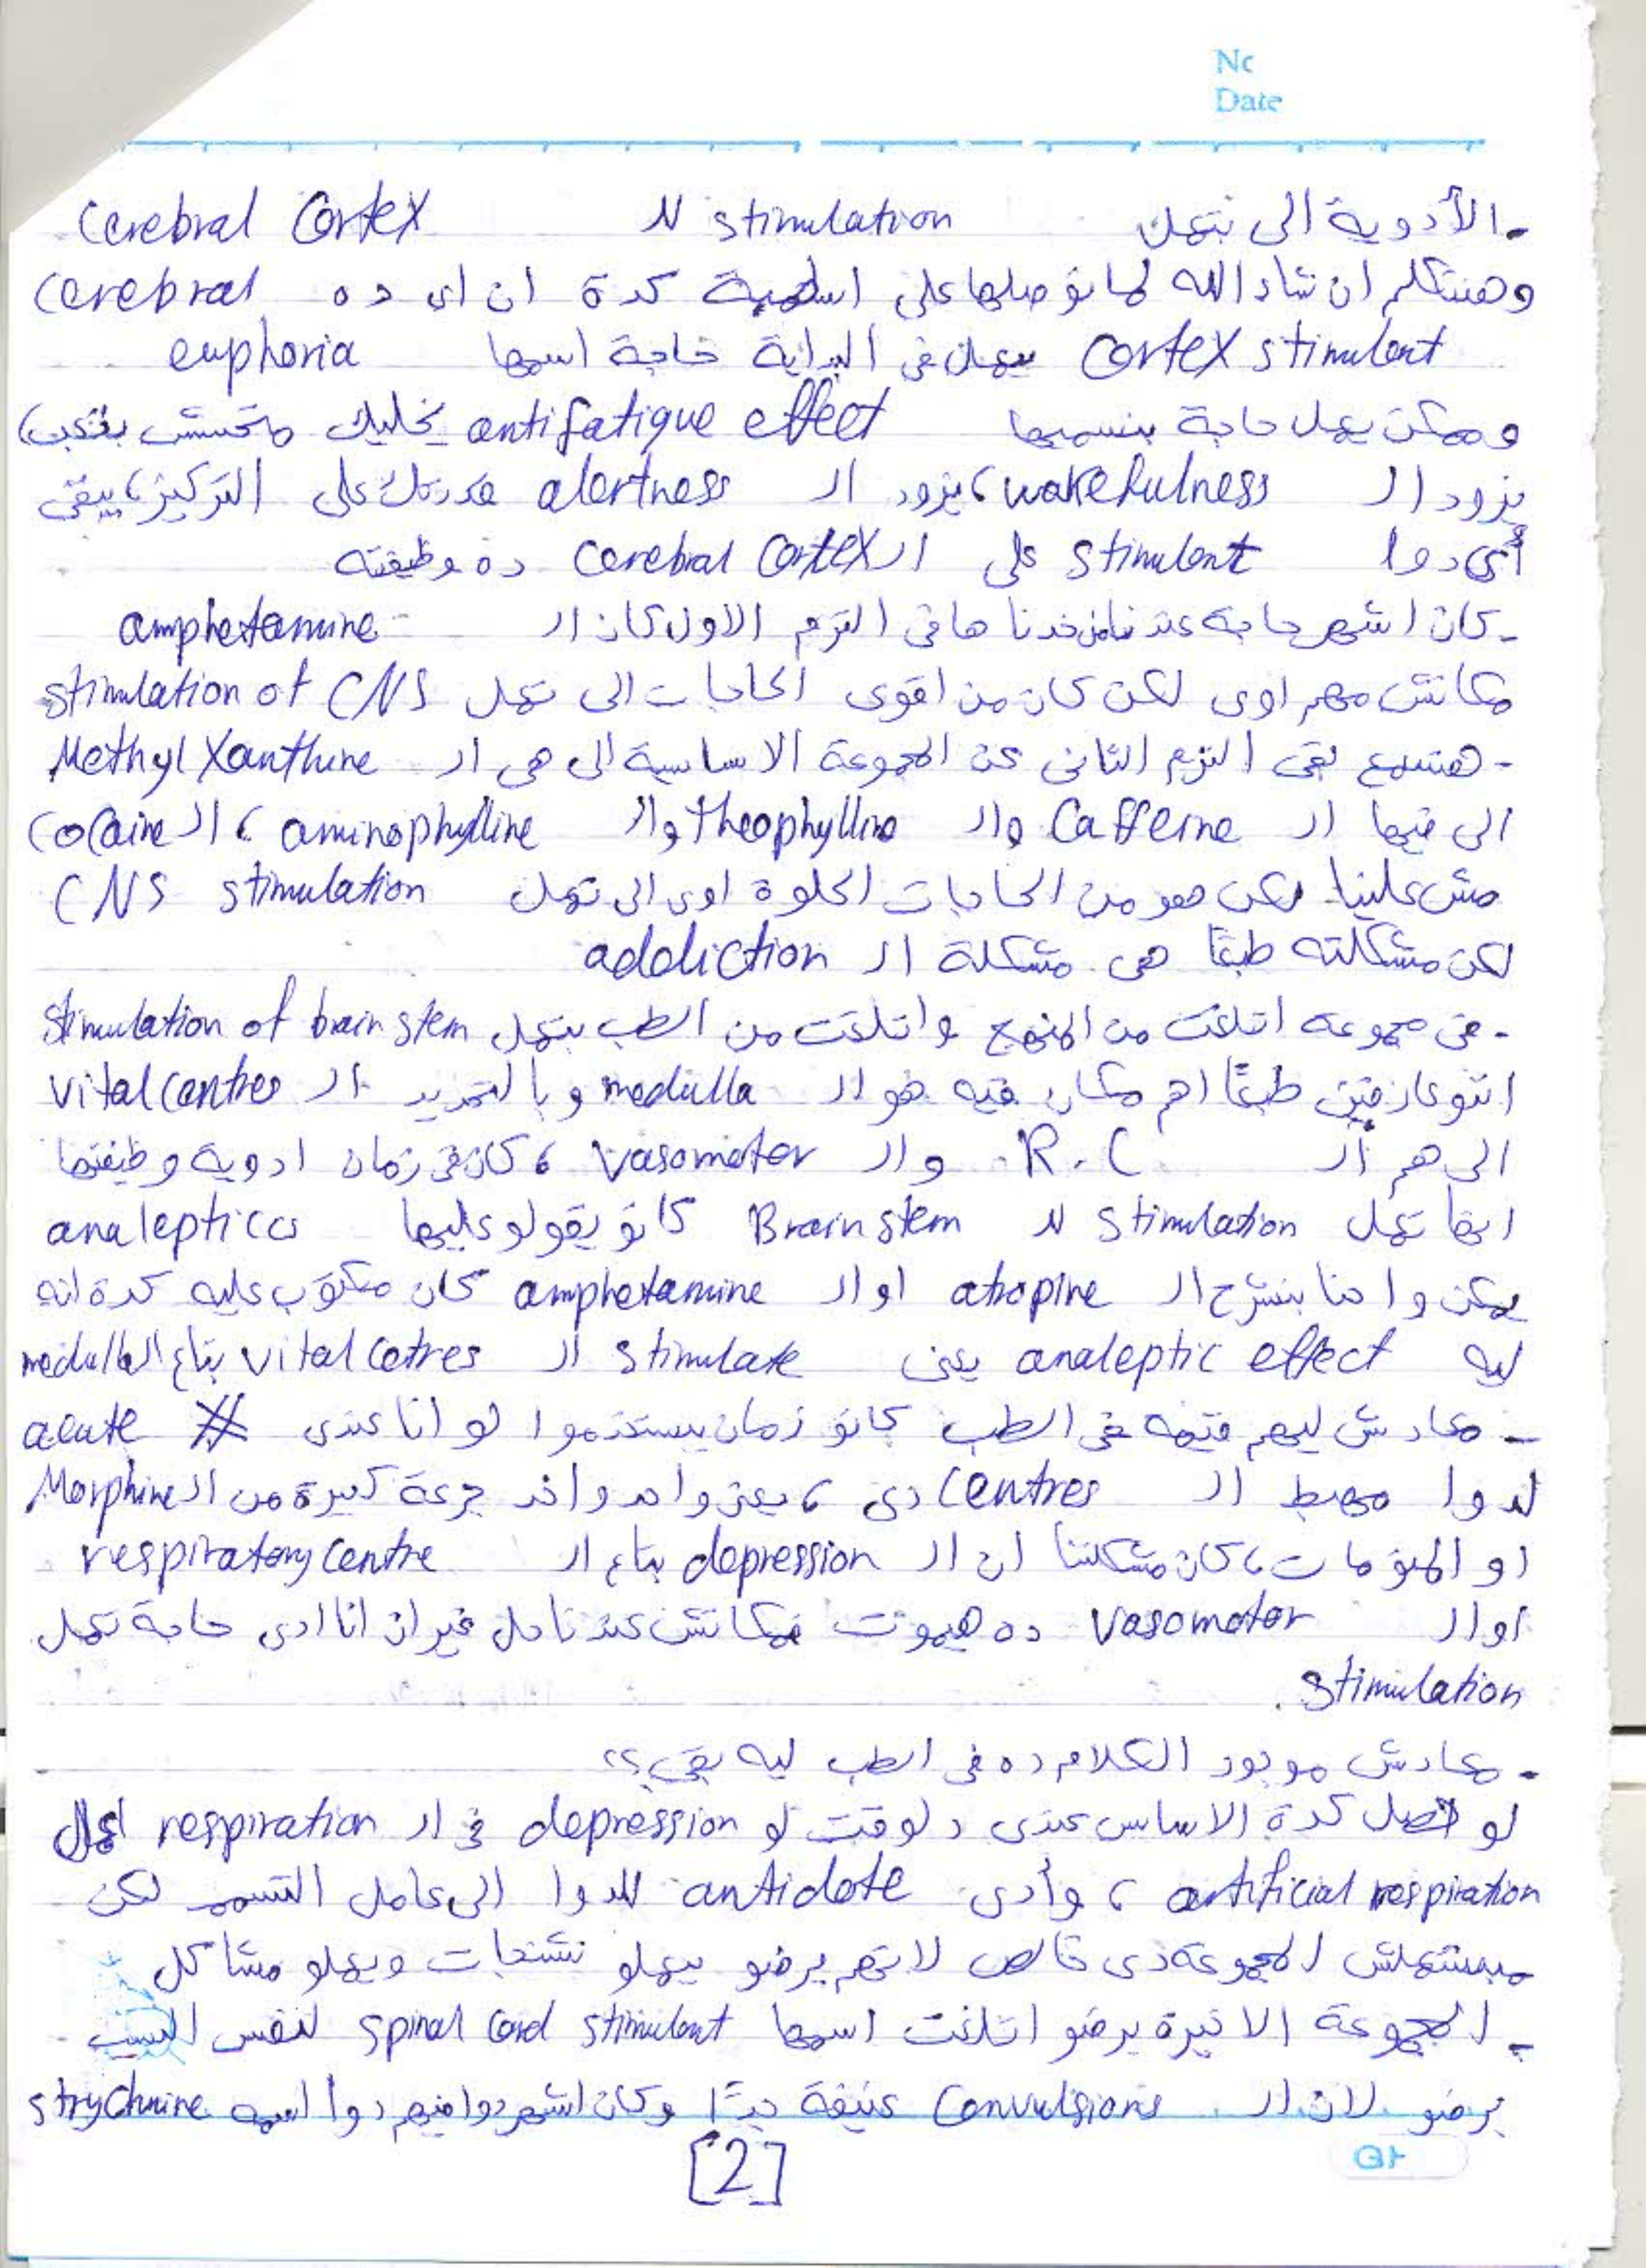 No
Date
- الأدوية الى بتعمل stimulation لل Cerebral Cortex
وهنتكلم ان شاء الله لما نوصلها على اساسية كدة ان اى ده cerebral
Cortex stimulant بيعمل فى البداية حاجة اسمها euphoria
وممكن يعمل حاجة بنسميها antifatigue effect يخليك متحسش بتعب،
يزود ال wakefulness، يزود ال alertness قدرتك على التركيز، يبقى
أى دوا stimulant على ال cerebral cortex ده وظيفته
- كان اشهر حاجة عندنا خدناها فى الترم الاول كان ال amphetamine
مكانش مهم اوى لكن كان من اقوى الحاجات الى تعمل stimulation of CNS
- هنسمع بقى الترم التانى عن المجموعة الاساسية الى هى ال Methyl Xanthine
الى فيها ال Caffeine وال theophylline وال aminophylline، ال Cocaine
مش علينا لكن هو من الحاجات الحلوة اوى الى تعمل CNS stimulation
لكن مشكلته طبعًا هى مشكلة ال addiction
- فى مجموعة اتلغت من المنهج واتلغت من الطب بتعمل Stimulation of brain stem
انتو عارفين طبعًا اهم مكان فيه هو ال medulla وبالتحديد ال vital centres
الى هم ال R.C وال vasomotor، كان فى زمان ادوية وظيفتها
انها تعمل stimulation لل Brain stem كانو يقولو عليها analeptics
يمكن واحنا بنشرح ال atropine او ال amphetamine كان مكتوب عليه كدة انه
ليه analeptic effect يعنى stimulate ال vital cetres بتاع ال medulla
- معادش ليهم قيمة فى الطب كانو زمان يستخدموا لو انا عندى acute
لدوا مهبط ال centres دى، يعنى واحد واخد جرعة كبيرة من ال Morphine
او المنومات، كان مشكلتنا ان ال depression بتاع ال respiratory centre
او ال vasomotor ده هيموت فمكانش عندنا حل غير ان انا ادى حاجة تعمل
stimulation.
- معادش موجود الكلام ده فى الطب ليه بقى؟؟
لو حصل كدة الاساس عندى دلوقت لو depression فى ال respiration اعمل
artificial respiration، وأدى antidote للدوا الى عامل التسمم لكن
مبستعملش المجموعة دى خالص لانهم برضو بيعملو تشنجات ويعملو مشاكل
- المجموعة الاخيرة برضو اتلغت اسمها spinal cord stimulant لنفس السبب
برضو لان ال Convulsions عنيفة جدًا وكان اشهر دوا فيهم دوا اسمه strychnine
[2]